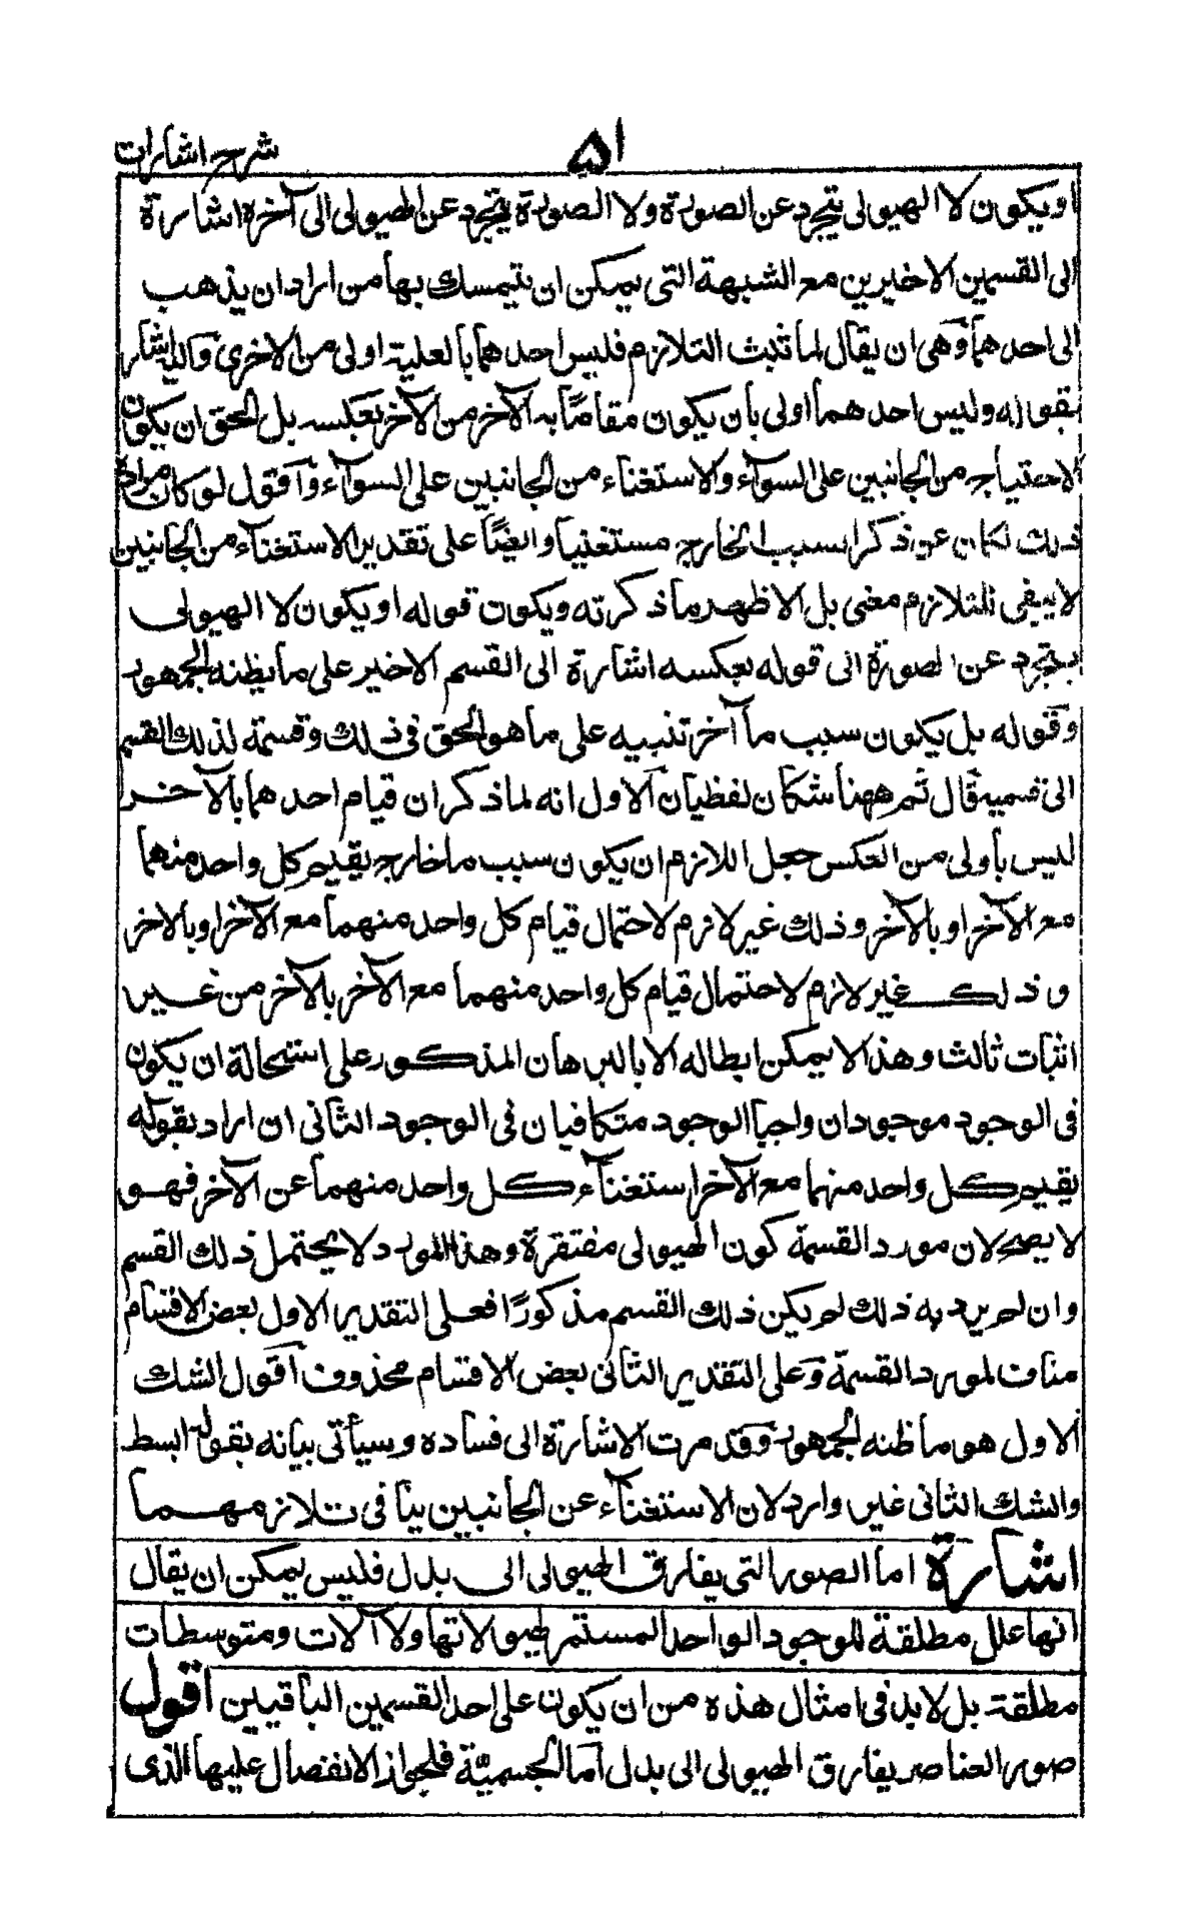 شرح اشارات
٥١
او يكون لا الهيولى تتجرد عن الصورة ولا الصورة تتجرد عن الهيولى الى آخره اشارة
الى القسمين الاخيرين مع الشبهة التى يمكن ان يتمسك بها من اراد ان يذهب
الى احدهما وهى ان يقال لما ثبت التلازم فليس احدهما بالعلية اولى من الاخرى واليه اشار
بقوله وليس احدهما اولى بان يكون مقاما به الآخر من الآخر بعكسه بل الحق ان يكون
الاحتياج من الجانبين على السوآء والاستغناء من الجانبين على السوآء واقول لو كان مراده
ذلك لكان عن ذكر السبب الخارج مستغنيا وايضًا على تقدير الاستغنآء من الجانبين
لا يبقى للتلازم معنى بل الاظهر ما ذكرته ويكون قوله او يكون لا الهيولى
يتجرد عن الصورة الى قوله بعكسه اشارة الى القسم الاخير على ما يظنه الجمهور
وقوله بل يكون سبب ما آخر تنبيه على ما هو الحق فى ذلك وقسمة لذلك القسم
الى قسميه قال ثم ههنا شكان لفظيان الاول انه لما ذكر ان قيام احدهما بالآخر
ليس باولى من العكس جعل اللازم ان يكون سبب ما خارج يقيم كل واحد منهما
مع الآخر او بالآخر وذلك غير لازم لاحتمال قيام كل واحد منهما مع الآخر او بالاخر
وذلك غير لازم لاحتمال قيام كل واحد منهما مع الآخر بالآخر من غير
اثبات ثالث وهذا لا يمكن ابطاله الا بالبرهان المذكور على استحالة ان يكون
فى الوجود موجودان واجبا الوجود متكافيان فى الوجود الثانى ان اراد بقوله
يقيم كل واحد منهما مع الآخر استغنآء كل واحد منهما عن الآخر فهو
لا يصح لان مورد القسمة كون الهيولى مفتقرة وهذا المورد لا يحتمل ذلك القسم
وان لم يرد به ذلك لم يكن ذلك القسم مذكورًا فعلى التقدير الاول بعض الاقسام
مناف لمورد القسمة وعلى التقدير الثانى بعض الاقسام محذوف اقول الشك
الاول هو ما ظنه الجمهور وقد مرت الاشارة الى فساده وسيأتى بيانه بقول ابسط
والشك الثانى غير وارد لان الاستغنآء عن الجانبين ينافى تلازمهما
اشارة اما الصور التى يفارق الهيولى الى بدل فليس يمكن ان يقال
انها علل مطلقة للوجود الواحد المستمر لهيولاتها ولا آلات ومتوسطات
مطلقة بل لا بد فى امثال هذه من ان يكون على احد القسمين الباقيين اقول
صور العناصر يفارق الهيولى الى بدل اما الجسميّة فلجواز الانفصال عليها الذى